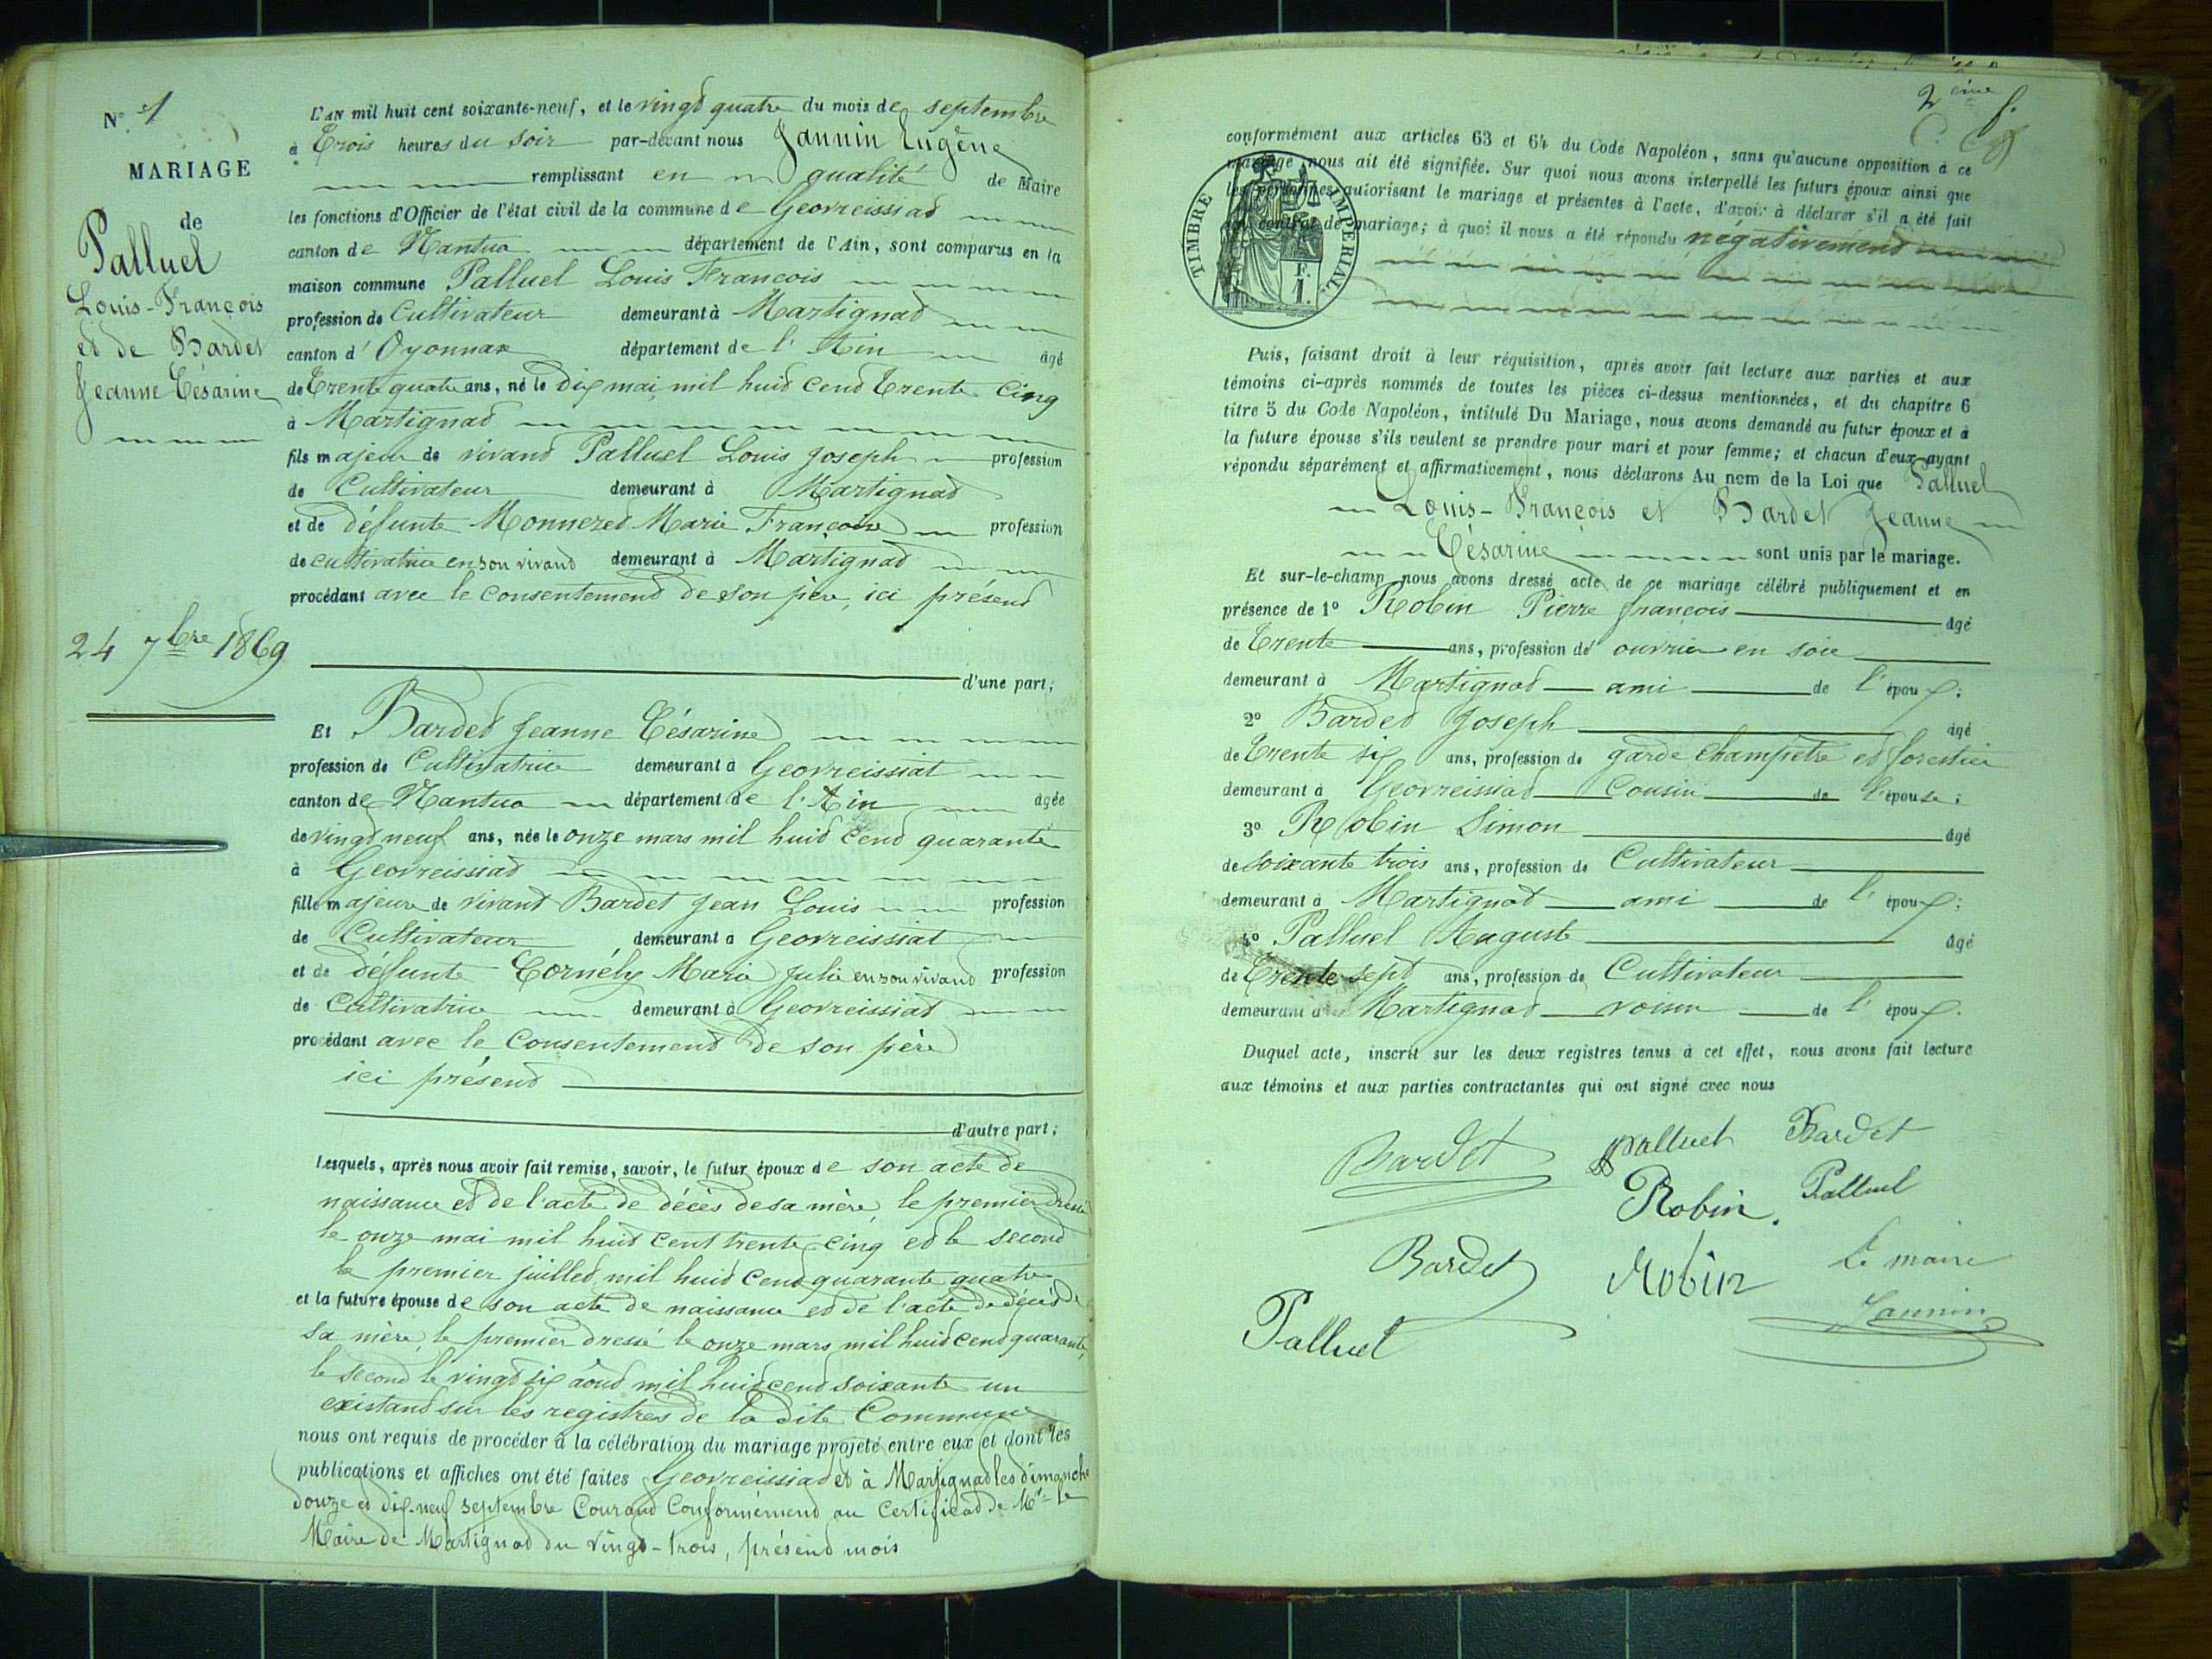 N° 1
MARIAGE
de
Palluel
Louis-François
et de Bardet
Jeanne Césarine
24 7bre 1869
L'AN mil huit cent soixante-neuf, et le vingt quatre du mois de septembre
à Trois heures du soir par-devant nous Jannin Eugène
remplissant en qualité de Maire
les fonctions d'Officier de l'état civil de la commune de Geovreissiat
canton de Nantua département de l'Ain, sont comparus en la
maison commune Palluel Louis François
profession de Cultivateur demeurant à Martignat
canton d'Oyonnax département de l'Ain âgé
de Trente quatre ans, né le Dix mai mil huit cent Trente Cinq
à Martignat
fils majeur de vivant Palluel Louis Joseph profession
de Cultivateur demeurant à Martignat
et de défunte Monneret Marie Françoise profession
de cultivatrice en son vivant demeurant à Martignat
procédant avec le consentement de son père, ici présent
d'une part;
Et Bardet Jeanne Césarine
profession de Cultivatrice demeurant à Geovreissiat
canton de Nantua département de l'Ain âgée
de vingt neuf ans, née le onze mars mil huit cent quarante
à Geovreissiat
fille majeure de vivant Bardet Jean Louis profession
de Cultivateur demeurant à Geovreissiat
et de défunte Cornély Marie Julie en son vivant profession
de Cultivatrice demeurant à Geovreissiat
procédant avec le Consentement de son père
ici présent
d'autre part;
Lesquels, après nous avoir fait remise, savoir, le futur époux de son acte de
naissance et de l'acte de décès de sa mère, le premier dressé
le onze mai mil huit cent trente cinq et le second
le premier juillet mil huit cent quarante quatre
et la future épouse de son acte de naissance et de l'acte de décès de
sa mère, le premier dressé le onze mars mil huit cent quarante,
le second le vingt six août mil huit cent soixante un
existant sur les registres de la dite Commune
nous ont requis de procéder à la célébration du mariage projeté entre eux et dont les
publications et affiches ont été faites Geovreissiat et à Martignat les dimanche
douze et dix-neuf septembre Courant Conformément au Certificat de Mr le
Maire de Martignat du vingt-trois, présent mois
2ème f.
conformément aux articles 63 et 64 du Code Napoléon, sans qu'aucune opposition à ce
mariage nous ait été signifiée. Sur quoi nous avons interpellé les futurs époux ainsi que
les personnes autorisant le mariage et présentes à l'acte, d'avoir à déclarer s'il a été fait
un contrat de mariage; à quoi il nous a été répondu négativement
TIMBRE IMPERIAL
F.
1.
Puis, faisant droit à leur réquisition, après avoir fait lecture aux parties et aux
témoins ci-après nommés de toutes les pièces ci-dessus mentionnées, et du chapitre 6
titre 5 du Code Napoléon, intitulé Du Mariage, nous avons demandé au futur époux et à
la future épouse s'ils veulent se prendre pour mari et pour femme; et chacun d'eux ayant
répondu séparément et affirmativement, nous déclarons Au nom de la Loi que Palluel
Louis-François et Bardet Jeanne
Césarine sont unis par le mariage.
Et sur-le-champ nous avons dressé acte de ce mariage célébré publiquement et en
présence de 1° Robin Pierre françois âgé
de Trente ans, profession de ouvrier en soie
demeurant à Martignat ami de l'époux;
2° Bardet Joseph âgé
de Trente six ans, profession de garde Champêtre et forestier
demeurant à Geovreissiat Cousin de l'épouse;
3° Robin Simon âgé
de soixante trois ans, profession de Cultivateur
demeurant à Martignat ami de l'époux;
4° Palluel Auguste âgé
de Trente sept ans, profession de Cultivateur
demeurant à Martignat voisin de l'époux.
Duquel acte, inscrit sur les deux registres tenus à cet effet, nous avons fait lecture
aux témoins et aux parties contractantes qui ont signé avec nous
Bardet palluel Bardet
Robin. Palluel
Bardet Robin Le maire
Palluel Jannin